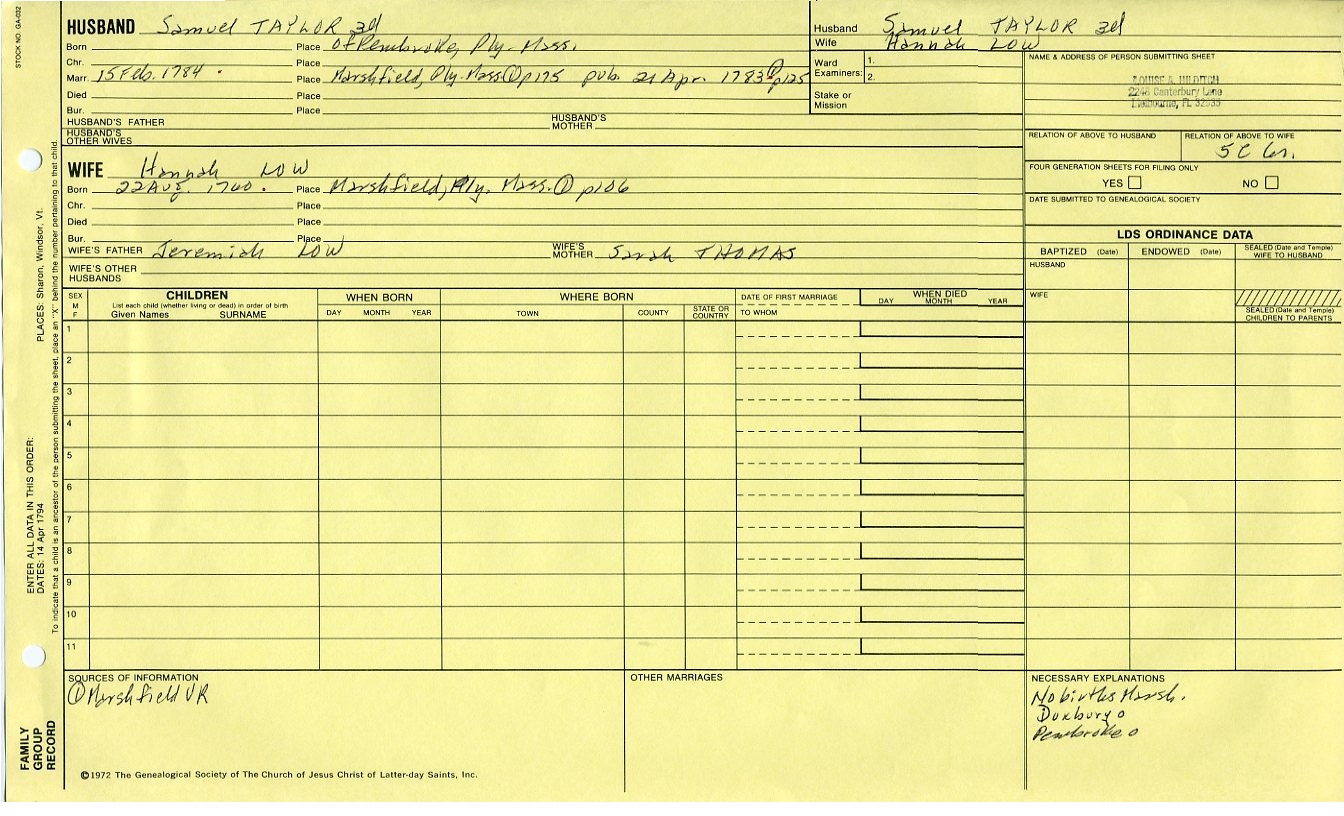 STOCK NO. GA-032
HUSBAND Samuel TAYLOR 3d
Born Place of Pembroke, Ply-Mass.
Chr. Place
Marr. 15 Feb. 1784 Place Marshfield, Ply. Mass. ① p175 pub. 21 Apr. 1783 ① p125
Died Place
Bur. Place
HUSBAND'S FATHER HUSBAND'S MOTHER
HUSBAND'S OTHER WIVES
Husband Samuel TAYLOR 3d
Wife Hannah LOW
Ward Examiners: 1.
2.
Stake or Mission
NAME & ADDRESS OF PERSON SUBMITTING SHEET
LOUISE A. HILDITCH
2246 Canterbury Lane
Melbourne, FL 32935
RELATION OF ABOVE TO HUSBAND RELATION OF ABOVE TO WIFE
5C 6r.
FOUR GENERATION SHEETS FOR FILING ONLY
YES NO
DATE SUBMITTED TO GENEALOGICAL SOCIETY
WIFE Hannah LOW
Born 22 Aug. 1760. Place Marshfield, Ply. Mass. ① p106
Chr. Place
Died Place
Bur. Place
WIFE'S FATHER Jeremiah LOW WIFE'S MOTHER Sarah THOMAS
WIFE'S OTHER HUSBANDS
LDS ORDINANCE DATA
BAPTIZED (Date) ENDOWED (Date) SEALED (Date and Temple) WIFE TO HUSBAND
HUSBAND
WIFE
SEALED (Date and Temple) CHILDREN TO PARENTS
SEX M F
CHILDREN
List each child (whether living or dead) in order of birth
Given Names SURNAME
WHEN BORN
DAY MONTH YEAR
WHERE BORN
TOWN COUNTY STATE OR COUNTRY
DATE OF FIRST MARRIAGE
TO WHOM
WHEN DIED
DAY MONTH YEAR
1
2
3
4
5
6
7
8
9
10
11
SOURCES OF INFORMATION
① Marshfield VR
OTHER MARRIAGES
NECESSARY EXPLANATIONS
No births Marsh.
Duxbury o
Pembroke o
©1972 The Genealogical Society of The Church of Jesus Christ of Latter-day Saints, Inc.
FAMILY GROUP RECORD
ENTER ALL DATA IN THIS ORDER:
DATES: 14 Apr 1794 PLACES: Sharon, Windsor, Vt.
To indicate that a child is an ancestor of the person submitting the sheet, place an "X" behind the number pertaining to that child.